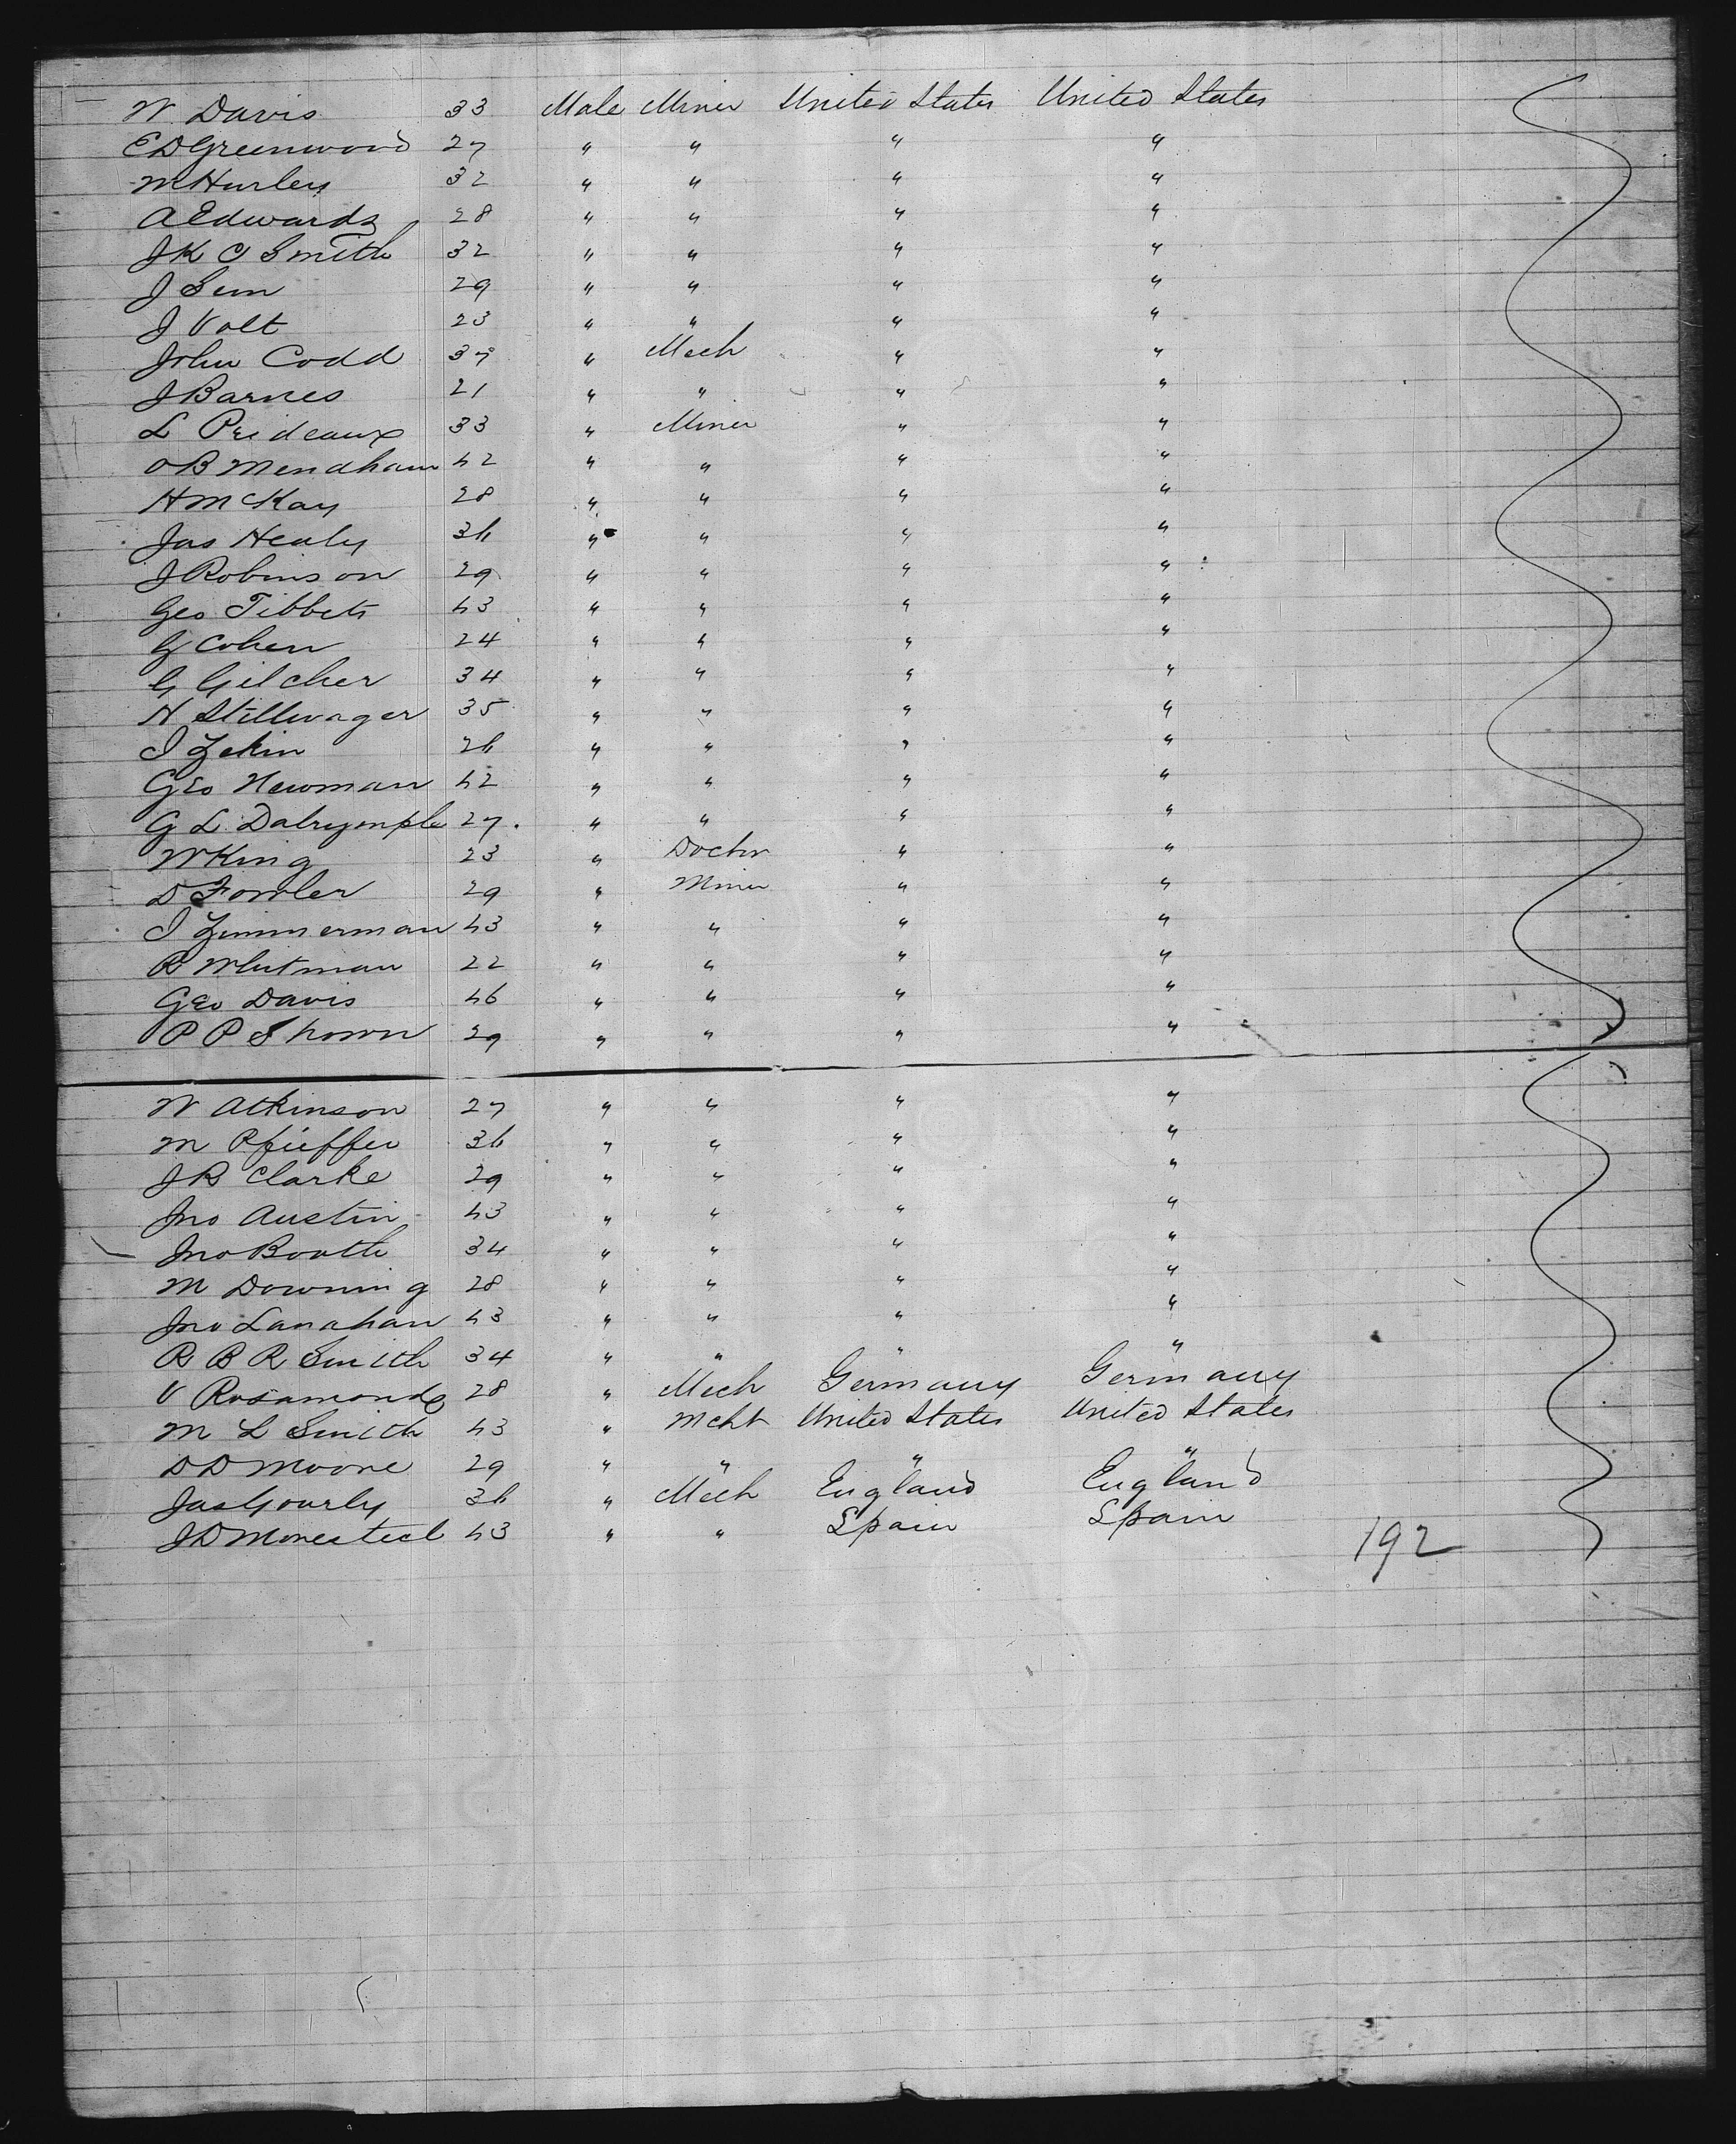 W. Davis 33 Male Miner United States United States
E D Greenwood 27 " " " "
M Hurley 32 " " " "
A Edwards 28 " " " "
J K C Smith 32 " " " "
J Sem 29 " " " "
J Volt 23 " " " "
John Codd 37 " Mech " "
J Barnes 21 " " " "
L Prideaux 33 " Miner " "
O B Mendham 42 " " " "
H McKay 28 " " " "
Jas Healy 36 " " " "
J Robinson 29 " " " "
Geo Tibbets 43 " " " "
G Cohen 24 " " " "
G Gilcher 34 " " " "
N Stillwager 35 " " " "
I Zekin 26 " " " "
Geo Newman 42 " " " "
G L Dalrymple 27 " " " "
W King 23 " Doctor " "
D Fowler 29 " Miner " "
I Zimmerman 43 " " " "
R Whitman 22 " " " "
Geo Davis 46 " " " "
P P Shown 29 " " " "
W Atkinson 27 " " " "
M Pfieffer 36 " " " "
J B Clarke 29 " " " "
Jno Austin 43 " " " "
Jno Booth 34 " " " "
M Downing 28 " " " "
Jno Lanahan 43 " " " "
R B R Smith 34 " " " "
V Rosamonde 28 " Mech Germany Germany
M L Smith 43 " Mcht United States United States
D D Moore 29 " " " "
Jas Gourly 36 " Mech England England
J D 43 " " Spain Spain
192